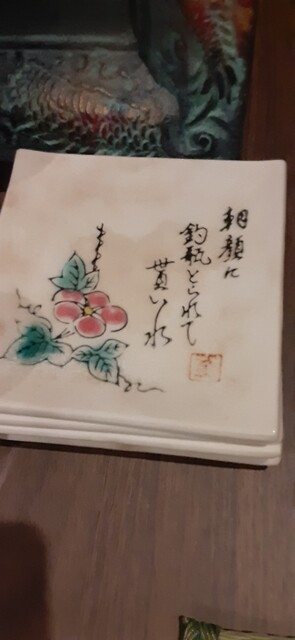 朝顔に
釣瓶とられて
貰い水